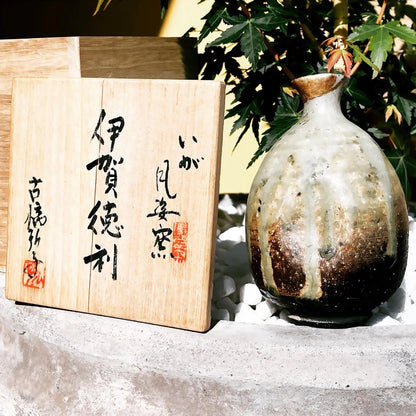 いが
風姿窯
伊賀徳利
古橋弘子